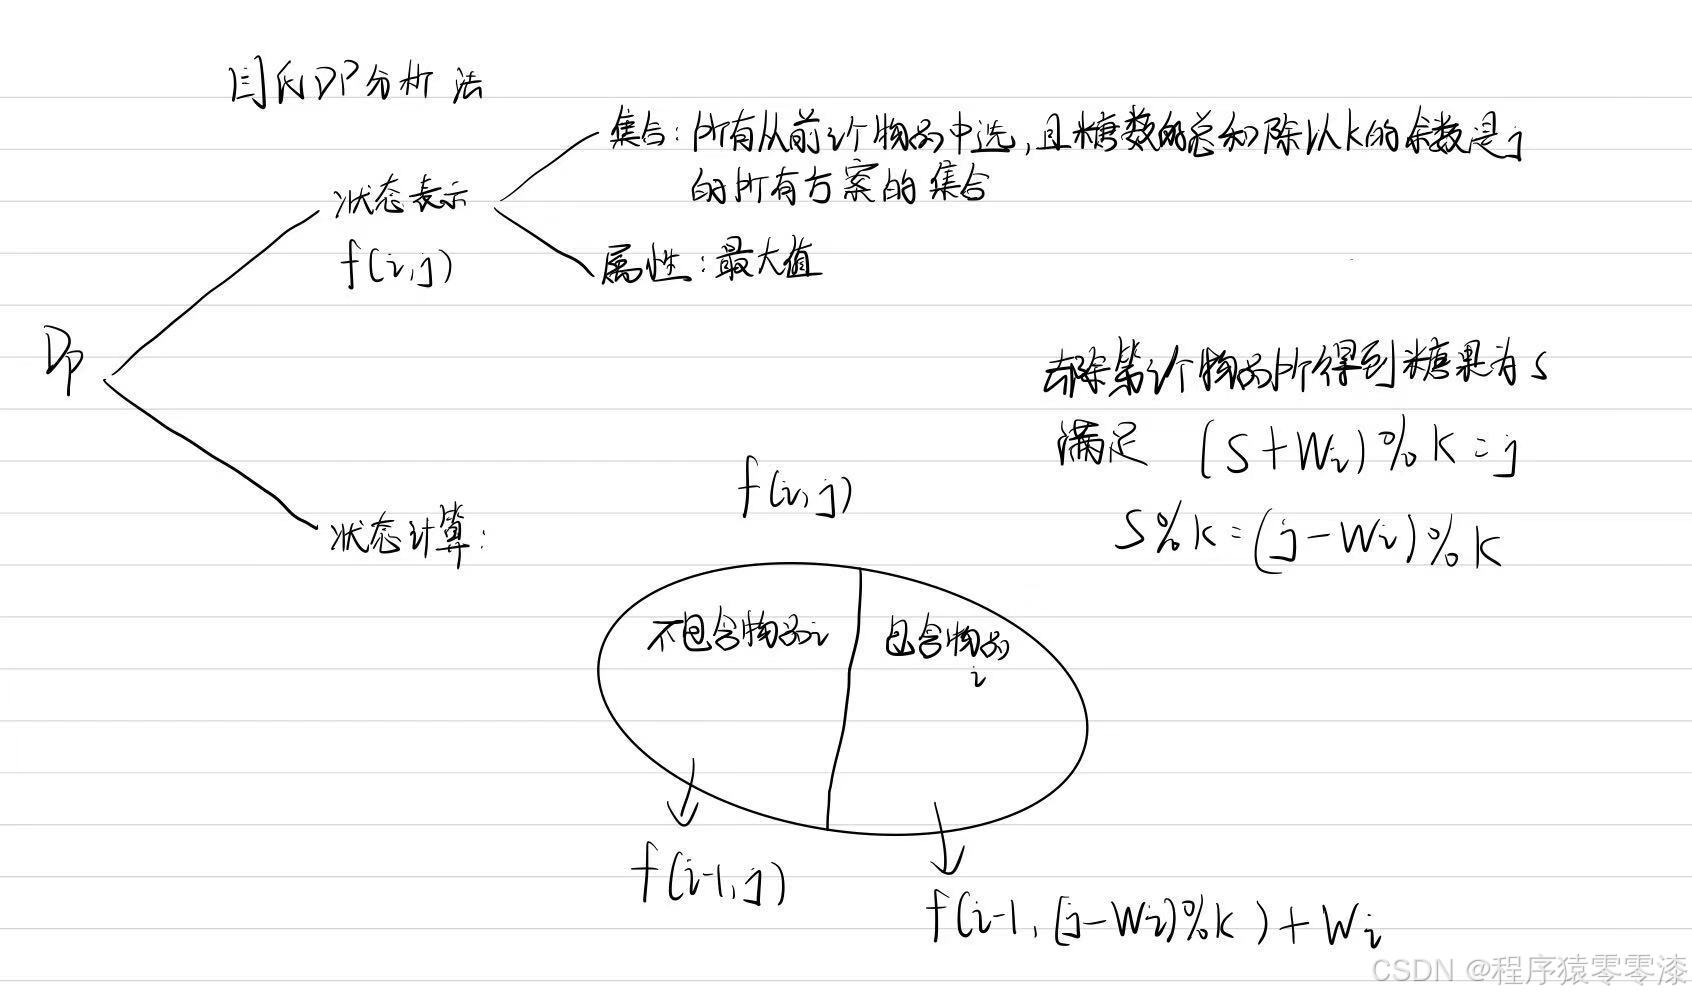 闫氏DP分析法
集合：所有从前i个物品中选，且糖数的总和除以K的余数是j
的所有方案的集合
状态表示
f(i,j)
属性：最大值
DP
去除第i个物品所得到糖果为S
满足 (S+Wi)%K=j
S%K=(j-Wi)%K
状态计算：
f(i,j)
不包含物品i
包含物品
i
f(i-1,j)
f(i-1,(j-Wi)%K)+Wi
CSDN @程序猿零零漆